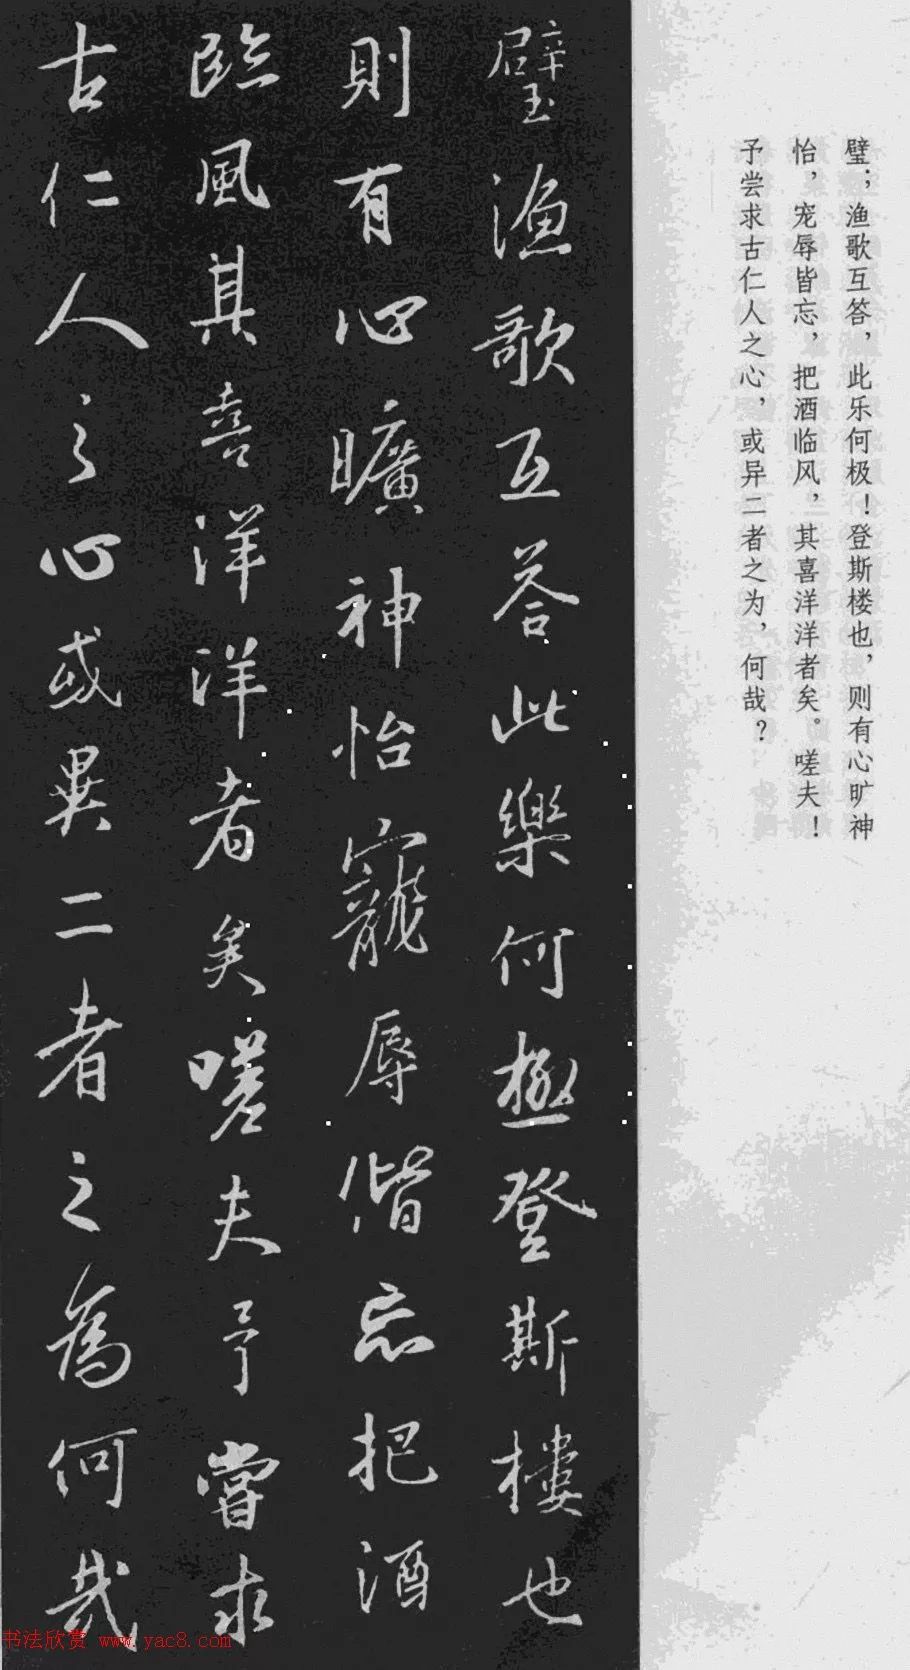 璧；渔歌互答，此乐何极！登斯楼也，则有心旷神
怡，宠辱皆忘，把酒临风，其喜洋洋者矣。嗟夫！
予尝求古仁人之心，或异二者之为，何哉？
璧渔歌互答此樂何極登斯樓也
則有心曠神怡寵辱偕忘把酒
臨風其喜洋洋者矣嗟夫予嘗求
古仁人之心或異二者之為何哉
书法欣赏 www.yac8.com